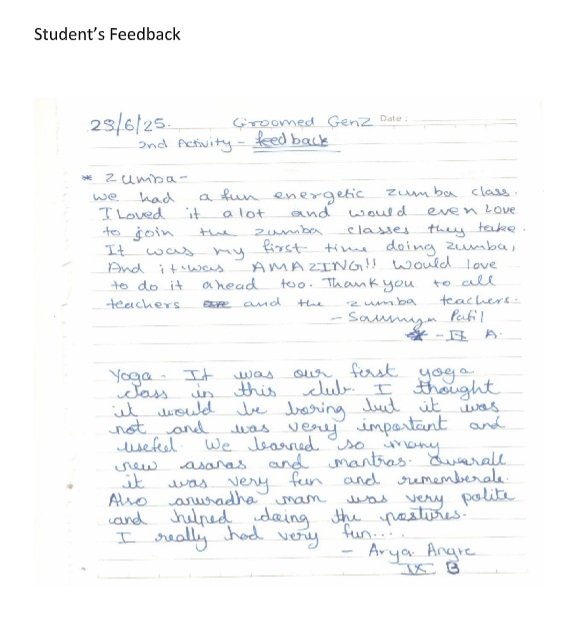 Student's Feedback
28/6/25. Groomed GenZ Date :
2nd Activity - feedback
* Zumba -
we had a fun energetic zumba class.
I Loved it a lot and would even Love
to join the zumba classes they take.
It was my first time doing zumba,
And it was AMAZING!! Would love
to do it ahead too. Thank you to all
teachers and the zumba teachers.
- Patil
A.
Yoga - It was our first yoga
class in this club. I thought
it would be boring but it was
not and was very important and
useful We learned so many
new asanas and mantras. Overall
it was very fun and rememberale.
Also anuradha mam was very polite
and helped doing the postures.
I really had very fun....
- Arya Angre
IX B